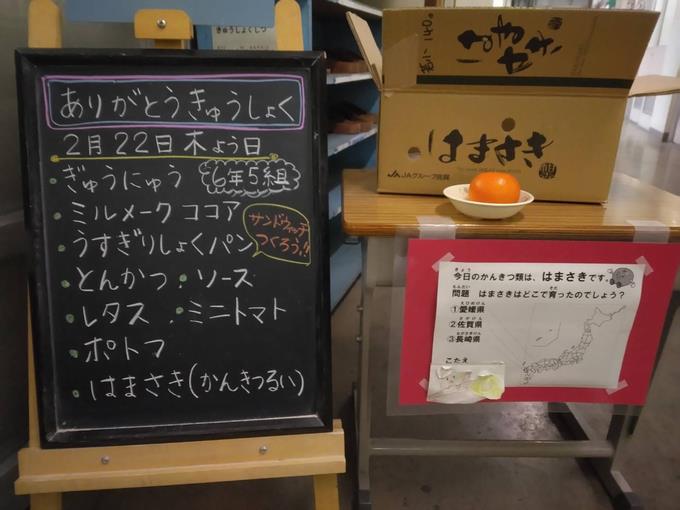 きゅうしょくしつ
ありがとうきゅうしょく
2月22日木よう日
・ぎゅうにゅう
6年5組
・ミルメークココア
・うすぎりしょくパン
サンドウィッチ
つくろう!!
・とんかつ・ソース
・レタス・ミニトマト
・ポトフ
・はまさき(かんきつるい)
はまさき
はまさき
JAグループ佐賀
きょう
今日のかんきつ類は、はまさきです。
もんだい そだ
問題 はまさきはどこで育ったのでしょう？
えひめけん
①愛媛県
さがけん
②佐賀県
ながさきけん
③長崎県
こたえ